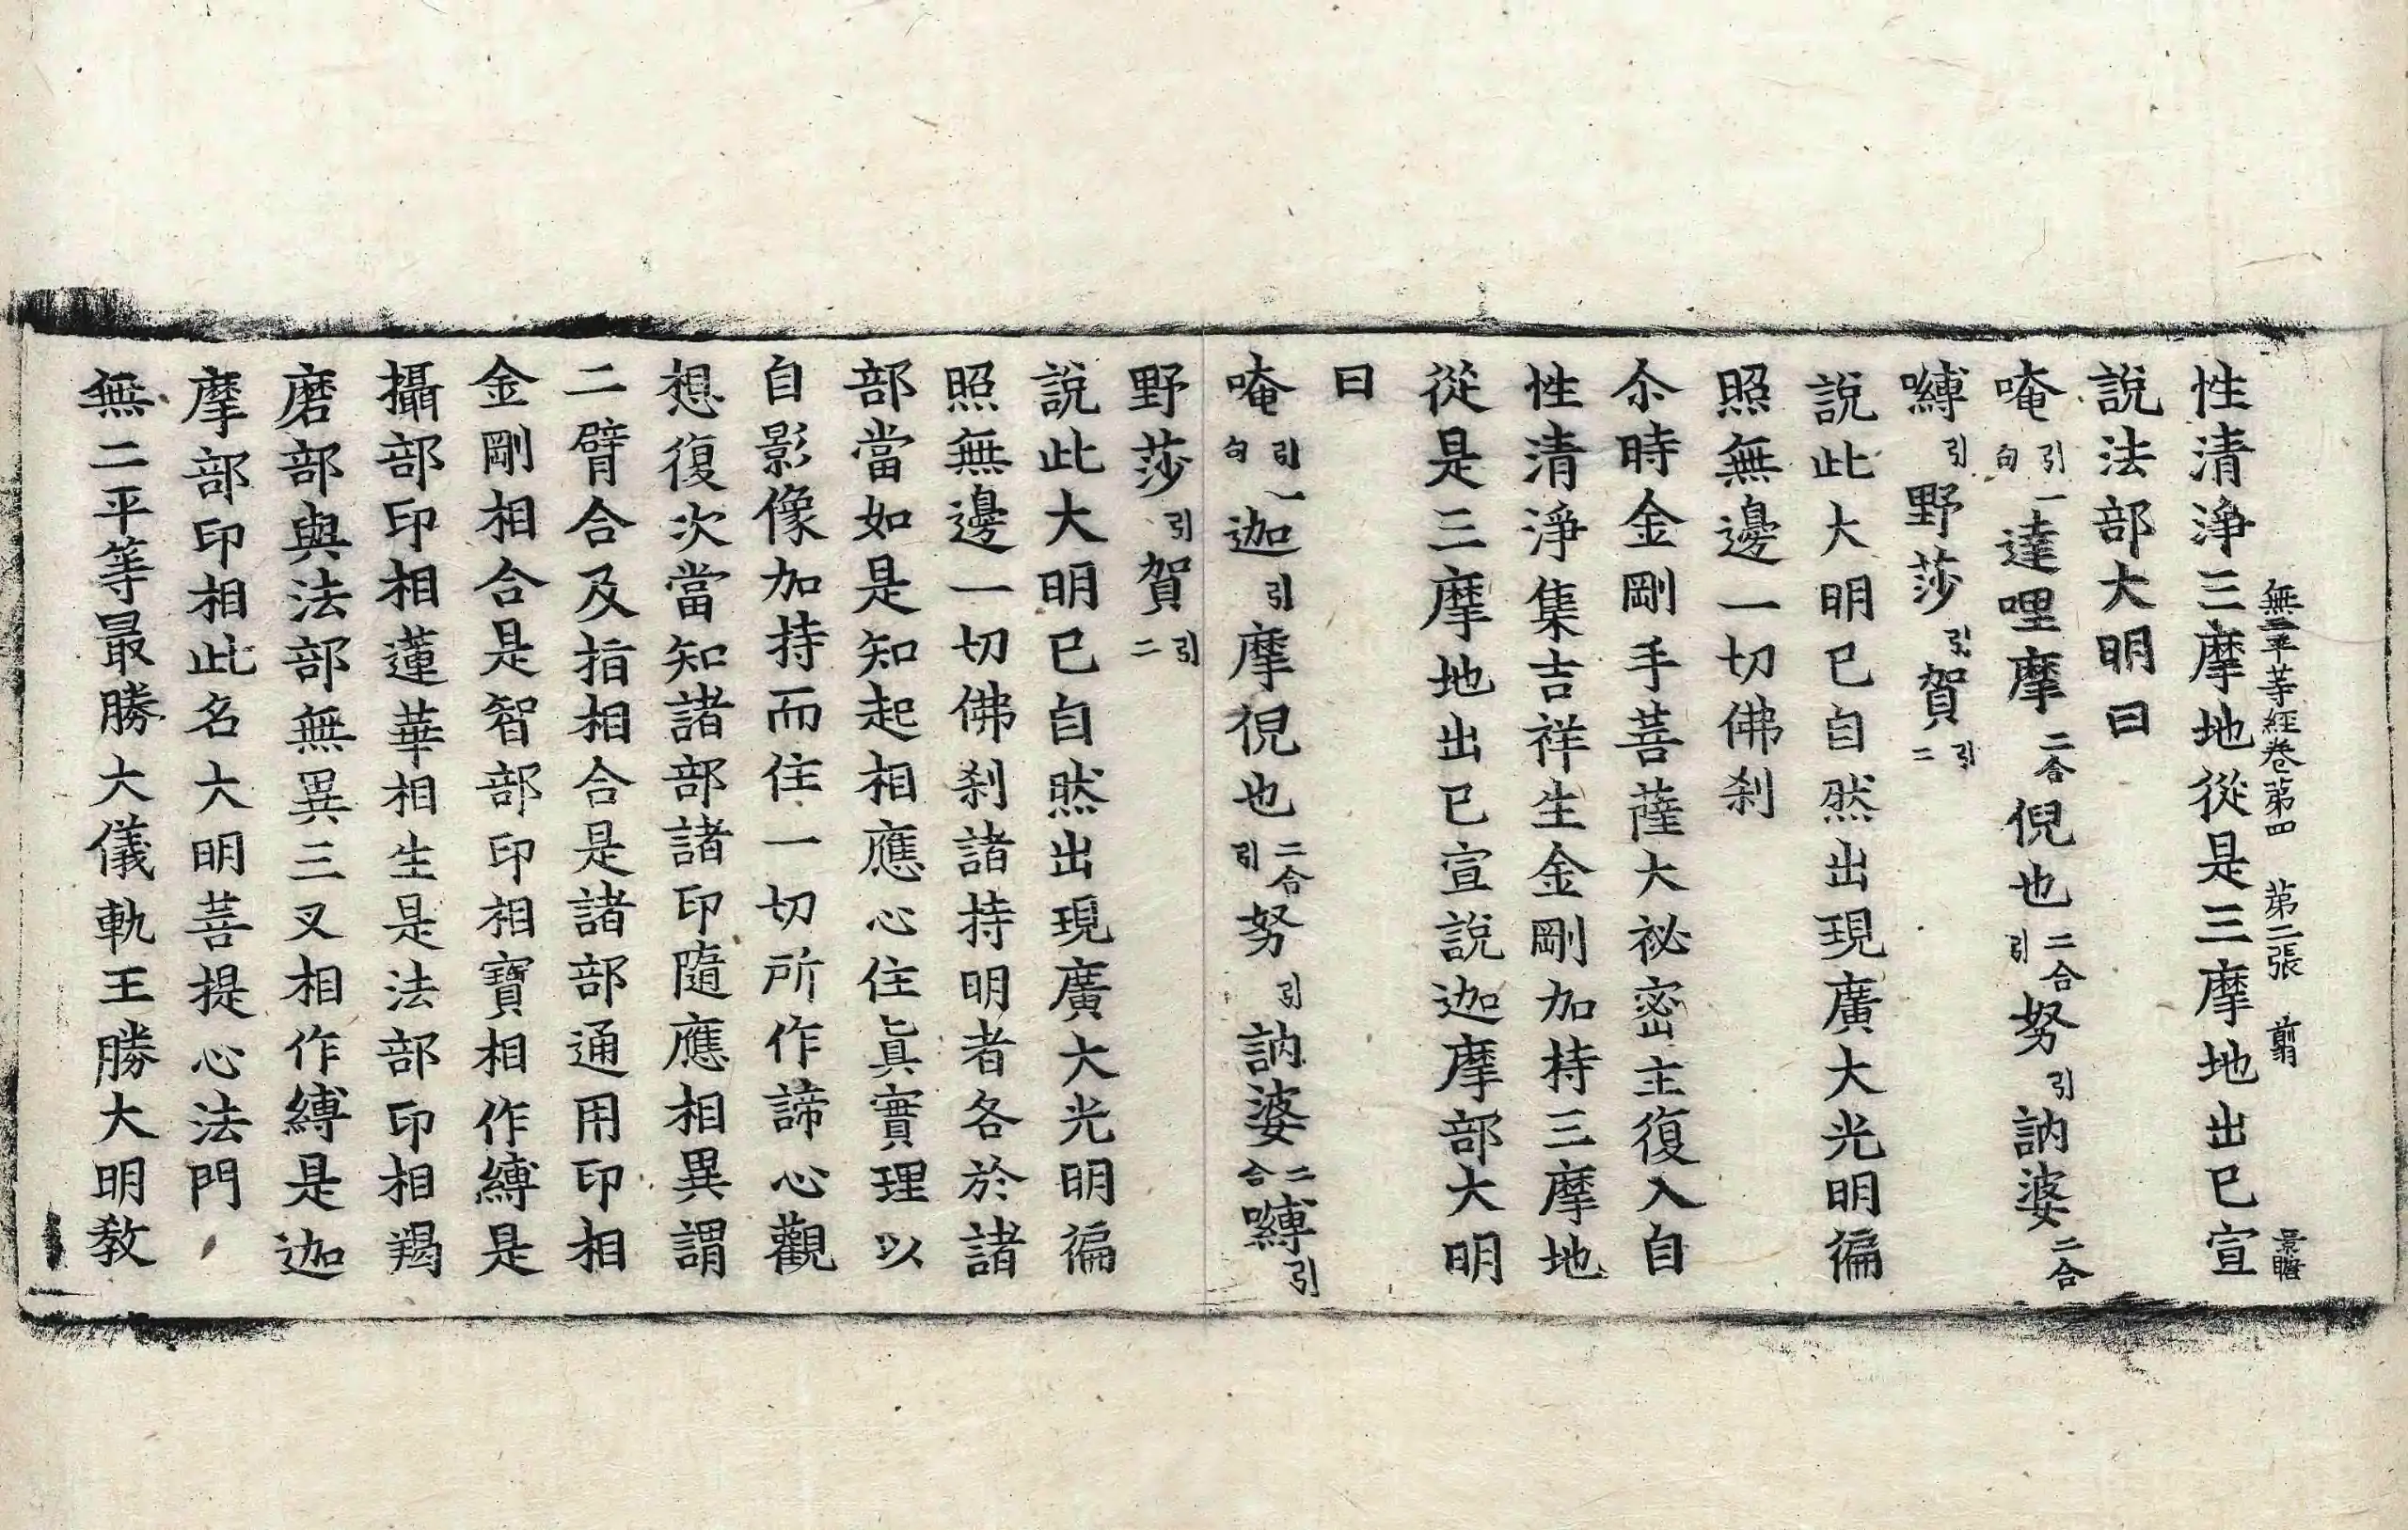 無二平等經卷第四 第二張 翦 景瞻
性清淨三摩地從是三摩地出已宣
說法部大明曰
唵引一句達哩摩二合倪也二合引努引訥婆二合
嚩引野莎引賀引二
說此大明已自然出現廣大光明徧
照無邊一切佛刹
尒時金剛手菩薩大祕密主復入自
性清淨集吉祥生金剛加持三摩地
從是三摩地出已宣說迦摩部大明
曰
唵引一句迦引摩倪也二合引努引訥婆二合嚩引
野莎引賀引二
說此大明已自然出現廣大光明徧
照無邊一切佛刹諸持明者各於諸
部當如是知起相應心住眞實理以
自影像加持而住一切所作諦心觀
想復次當知諸部諸印隨應相異謂
二臂合及指相合是諸部通用印相
金剛相合是智部印相寶相作縛是
攝部印相蓮華相生是法部印相羯
磨部與法部無異三叉相作縛是迦
摩部印相此名大明菩提心法門
無二平等最勝大儀軌王勝大明教